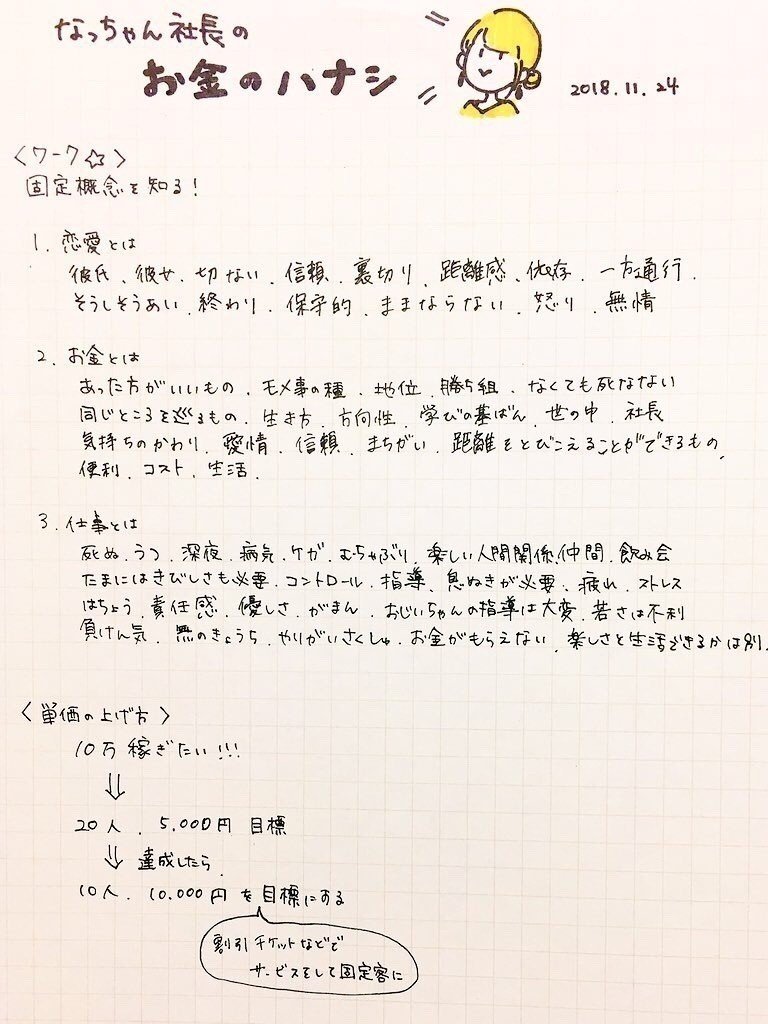 なっちゃん社長の
お金のハナシ
2018.11.24
〈ワーク☆〉
固定概念を知る！
1. 恋愛とは
彼氏、彼女、切ない、信頼、裏切り、距離感、依存、一方通行、
そうしそうあい、終わり、保守的、ままならない、怒り、無情
2. お金とは
あった方がいいもの、モメ事の種、地位、勝ち組、なくても死なない
同じところを巡るもの、生き方、方向性、学びの基ばん、世の中、社長
気持ちのかわり、愛情、信頼、まちがい、距離をとびこえることができるもの、
便利、コスト、生活、
3. 仕事とは
死ぬ、うつ、深夜、病気、ケガ、むちゃぶり、楽しい人間関係、仲間、飲み会
たまにはきびしさも必要、コントロール、指導、息ぬきが必要、疲れ、ストレス
はちょう、責任感、優しさ、がまん、おじいちゃんの指導は大変、若さは不利
負けん気、無のきょうち、やりがいさくしゅ、お金がもらえない、楽しさと生活できるかは別、
〈単価の上げ方〉
10万稼ぎたい!!!
⇓
20人、5,000円目標
⇓ 達成したら、
10人、10,000円を目標にする
割引チケットなどで
サービスをして固定客に